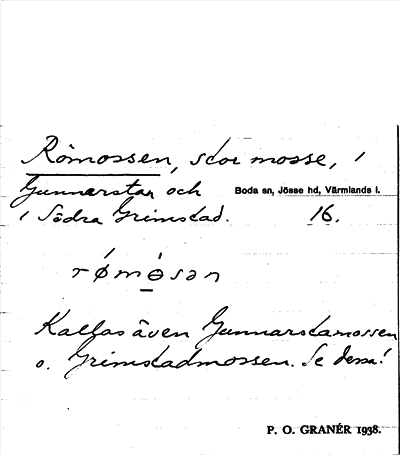 Römossen, stor mosse, i
Gunnarstan och
Boda sn, Jösse hd, Värmlands l.
i Södra Grimstad.
16.
rǿmɵ́sən
Kallas även Gunnarstamossen
o. Grimstadmossen. Se dessa!
P. O. GRANÉR 1938.